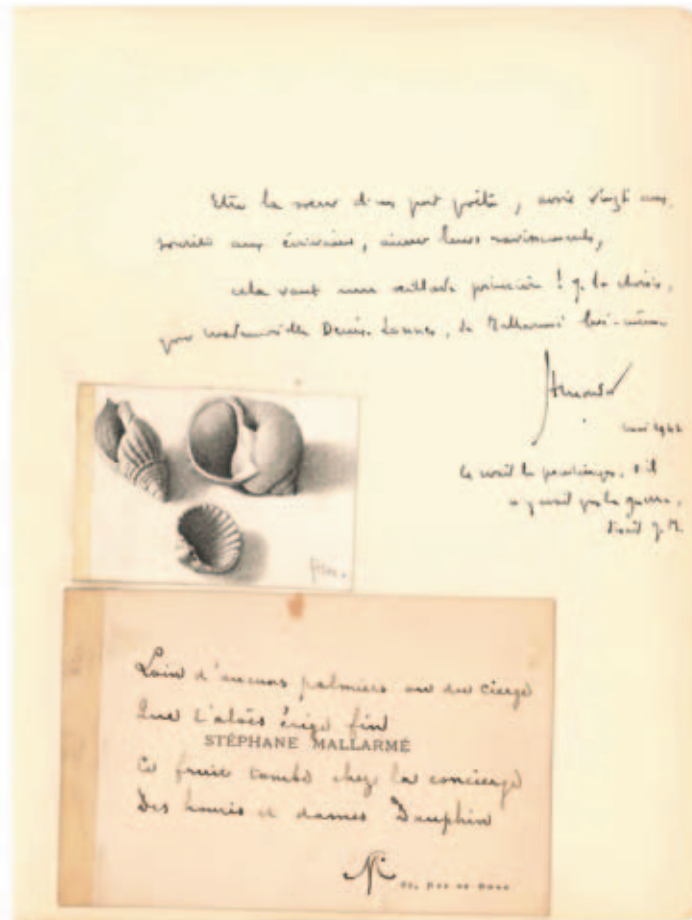 Etre la soeur d'un poète, avoir vingt ans,
sourire aux écrivains, aimer leurs ravissements,
cela vaut une princière ! je la choisis,
pour Mademoiselle Denise Lannes, de Mallarmé lui-même
mai 1942
ce serait le printemps, s'il
n'y avait pas la guerre,
dirait J. M.
Loin d'aucuns palmiers ou du cierge
Que l'aloès érige fin
STÉPHANE MALLARMÉ
Ce fruit tombe chez la concierge
Des houris et dames Dauphin
RUE DE ROME